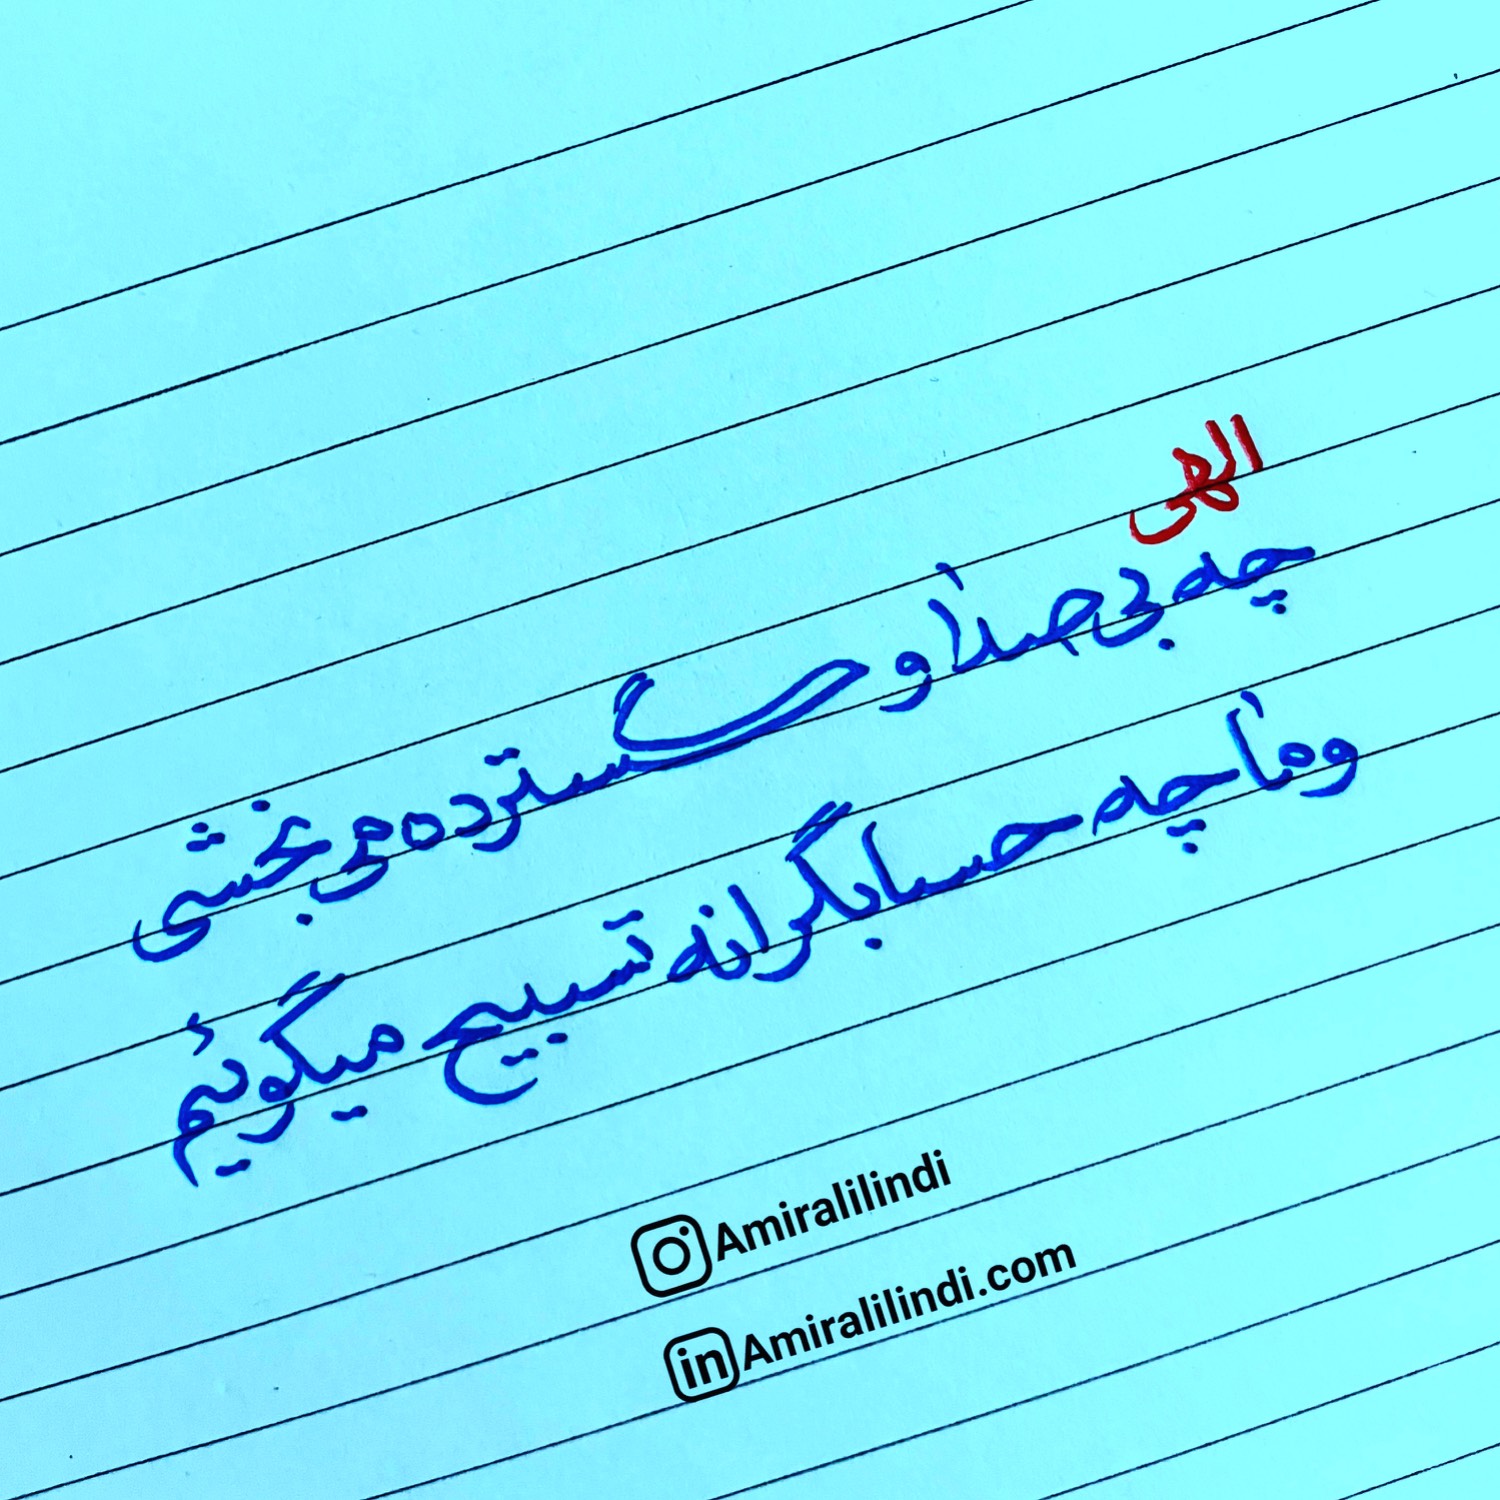 الهی
چه بی صدا و گسترده می بخشی
و ما چه حسابگرانه تسبیح میگوئیم
Amiralilindi
in Amiralilindi.com